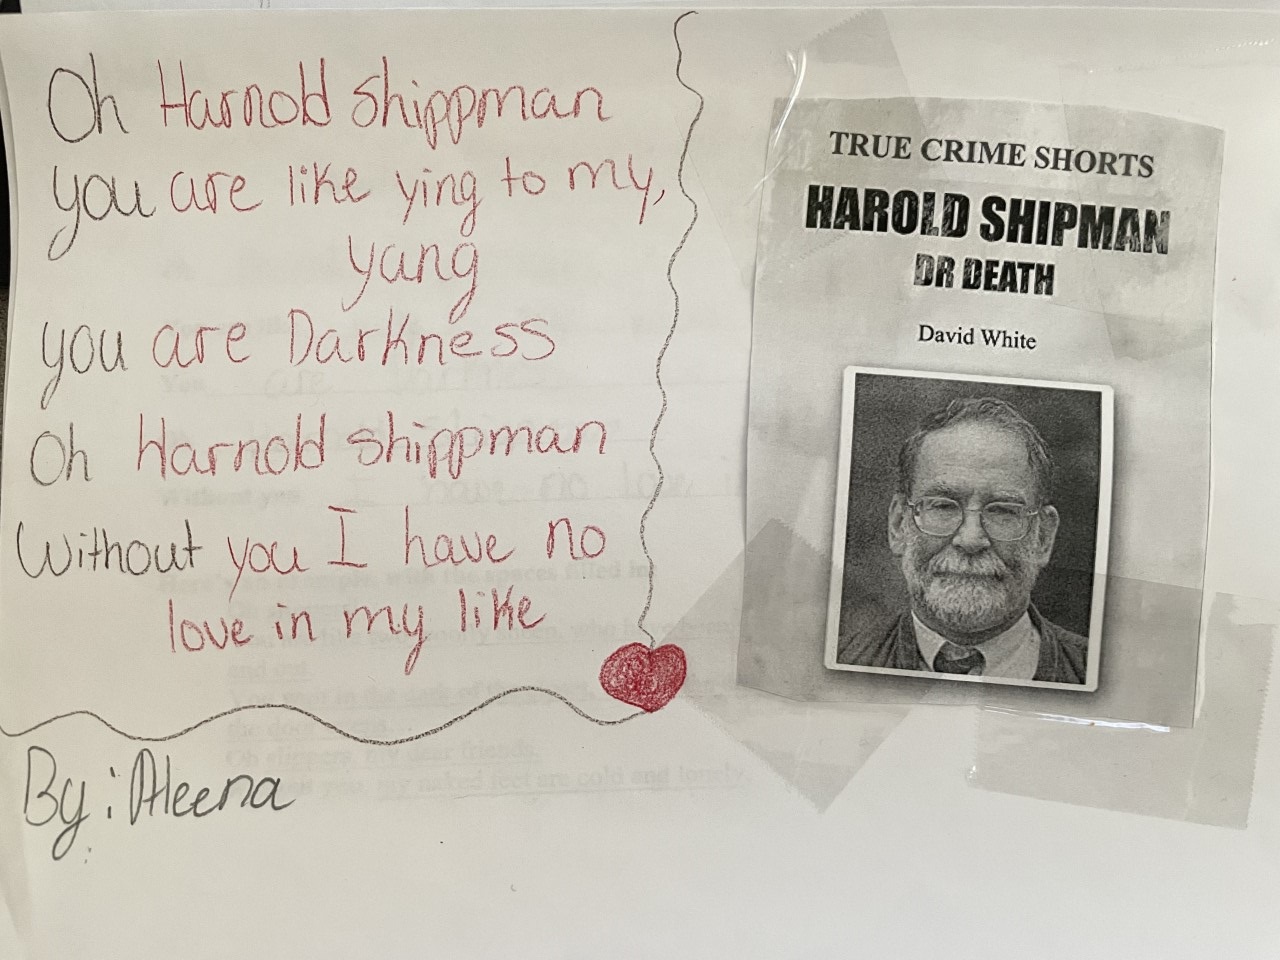 Oh Harnold shippman
you are like ying to my,
yang
you are Darkness
Oh Harnold shippman
Without you I have no
love in my like
By: Aleena
TRUE CRIME SHORTS
HAROLD SHIPMAN
DR DEATH
David White